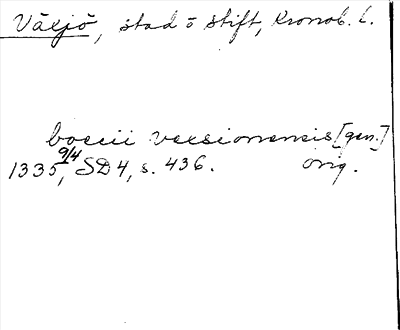 Växjö, stad o stift, Kronob. l.
bocii vexsionensis [gen.]
1335 9/4, SD 4, s. 436. orig.